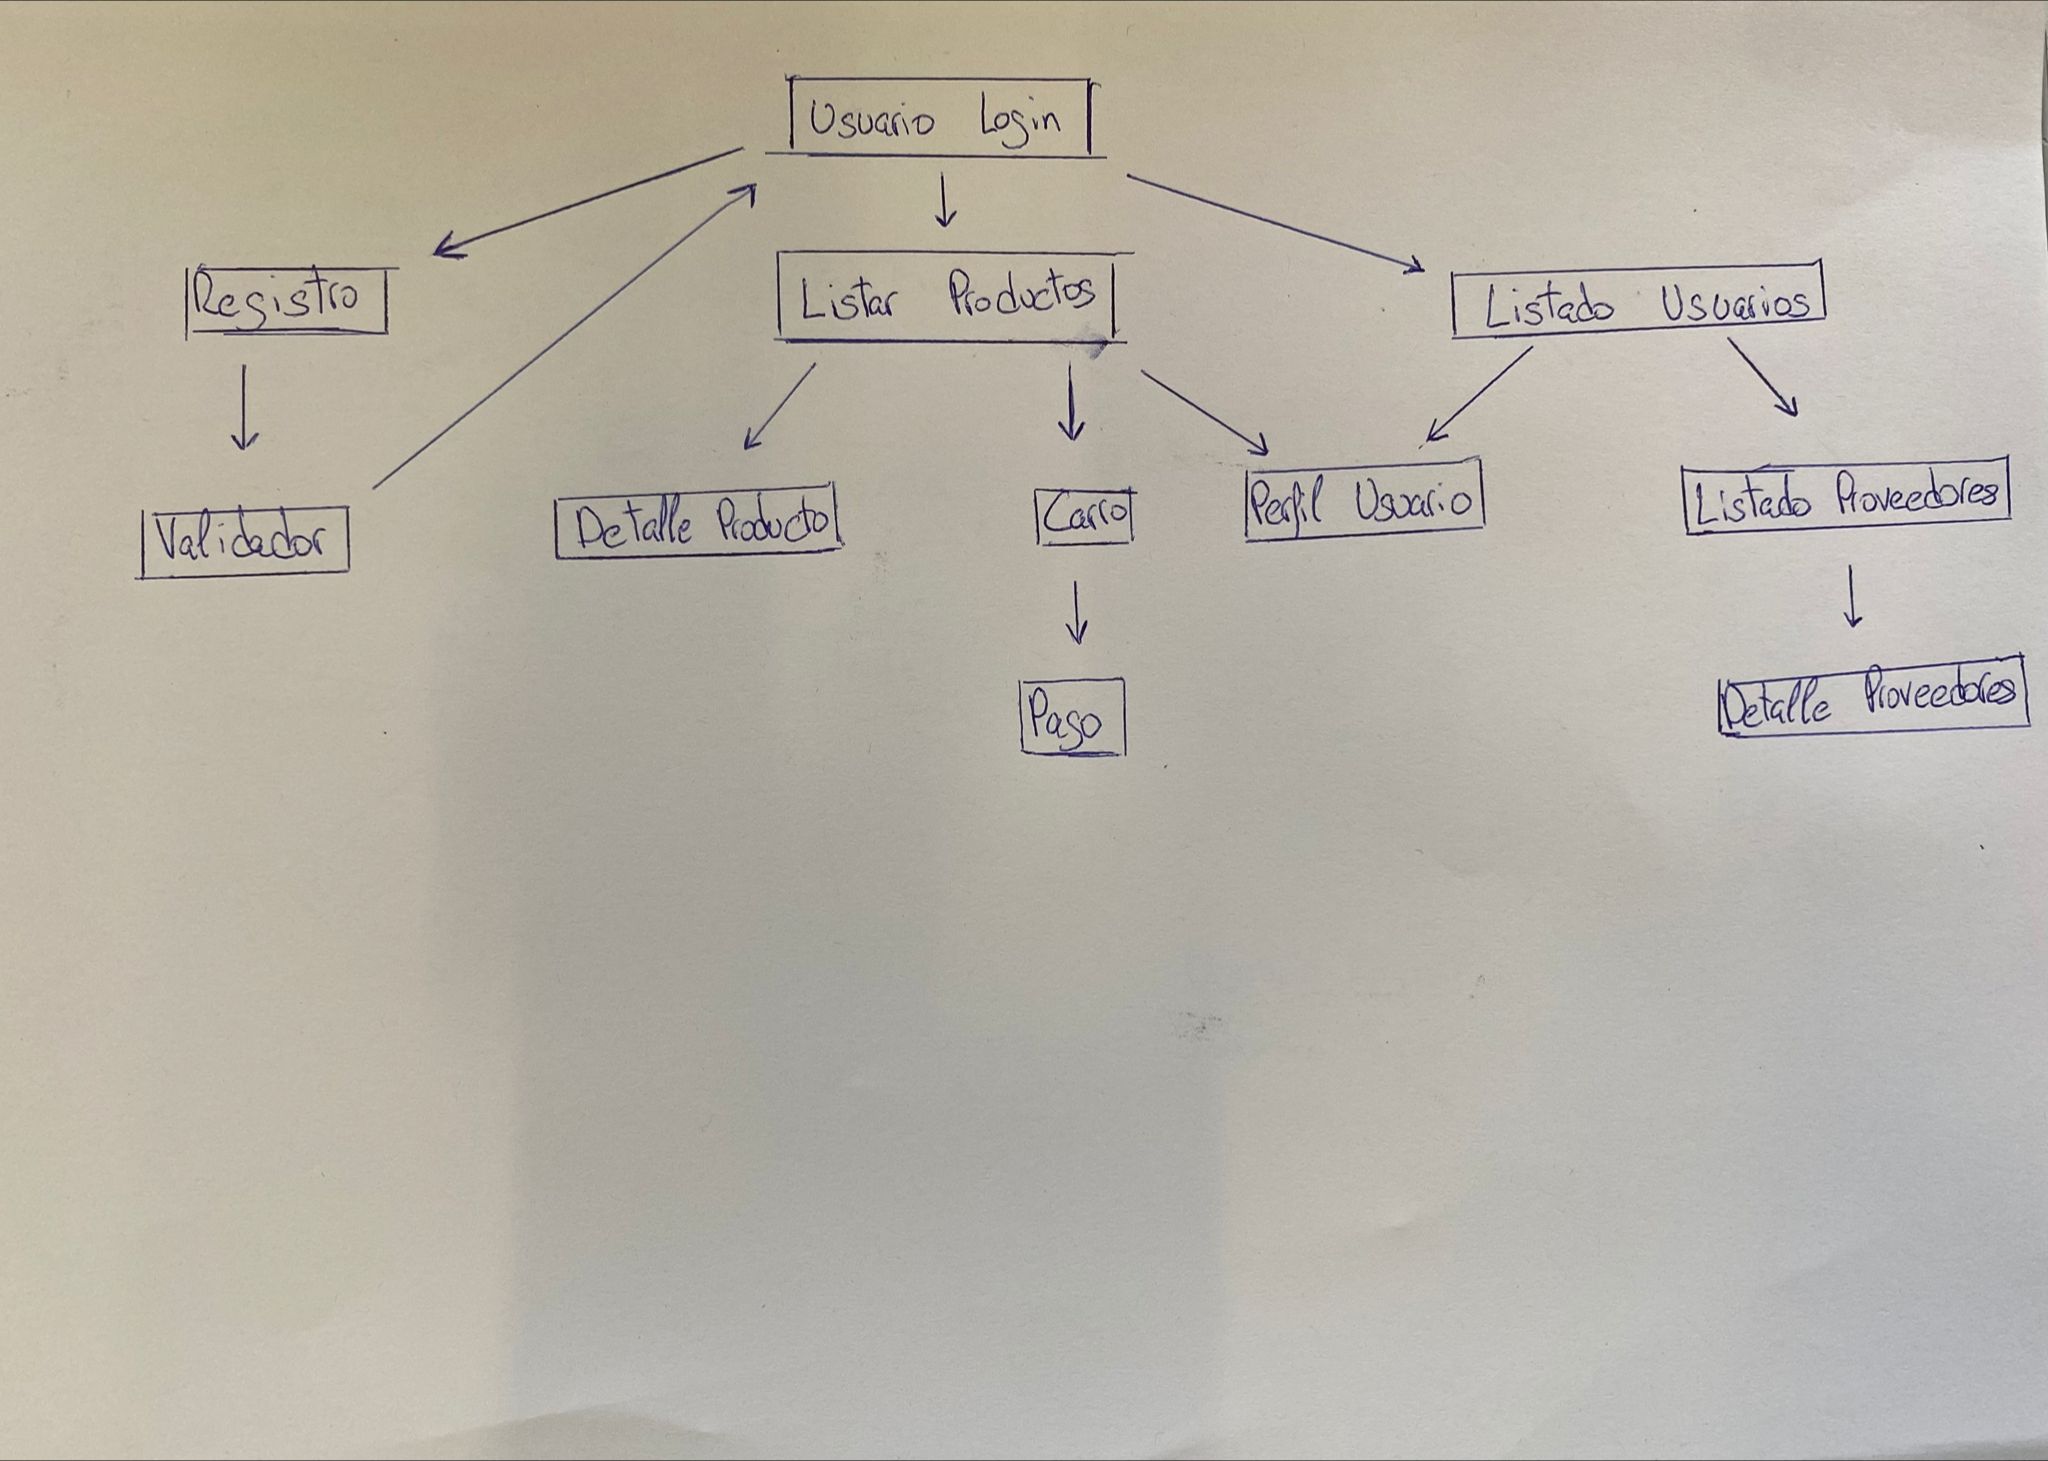 Usuario Login
Registro
Listar Productos
Listado Usuarios
Validador
Detalle Producto
Carro
Perfil Usuario
Listado Proveedores
Pago
Detalle Proveedores